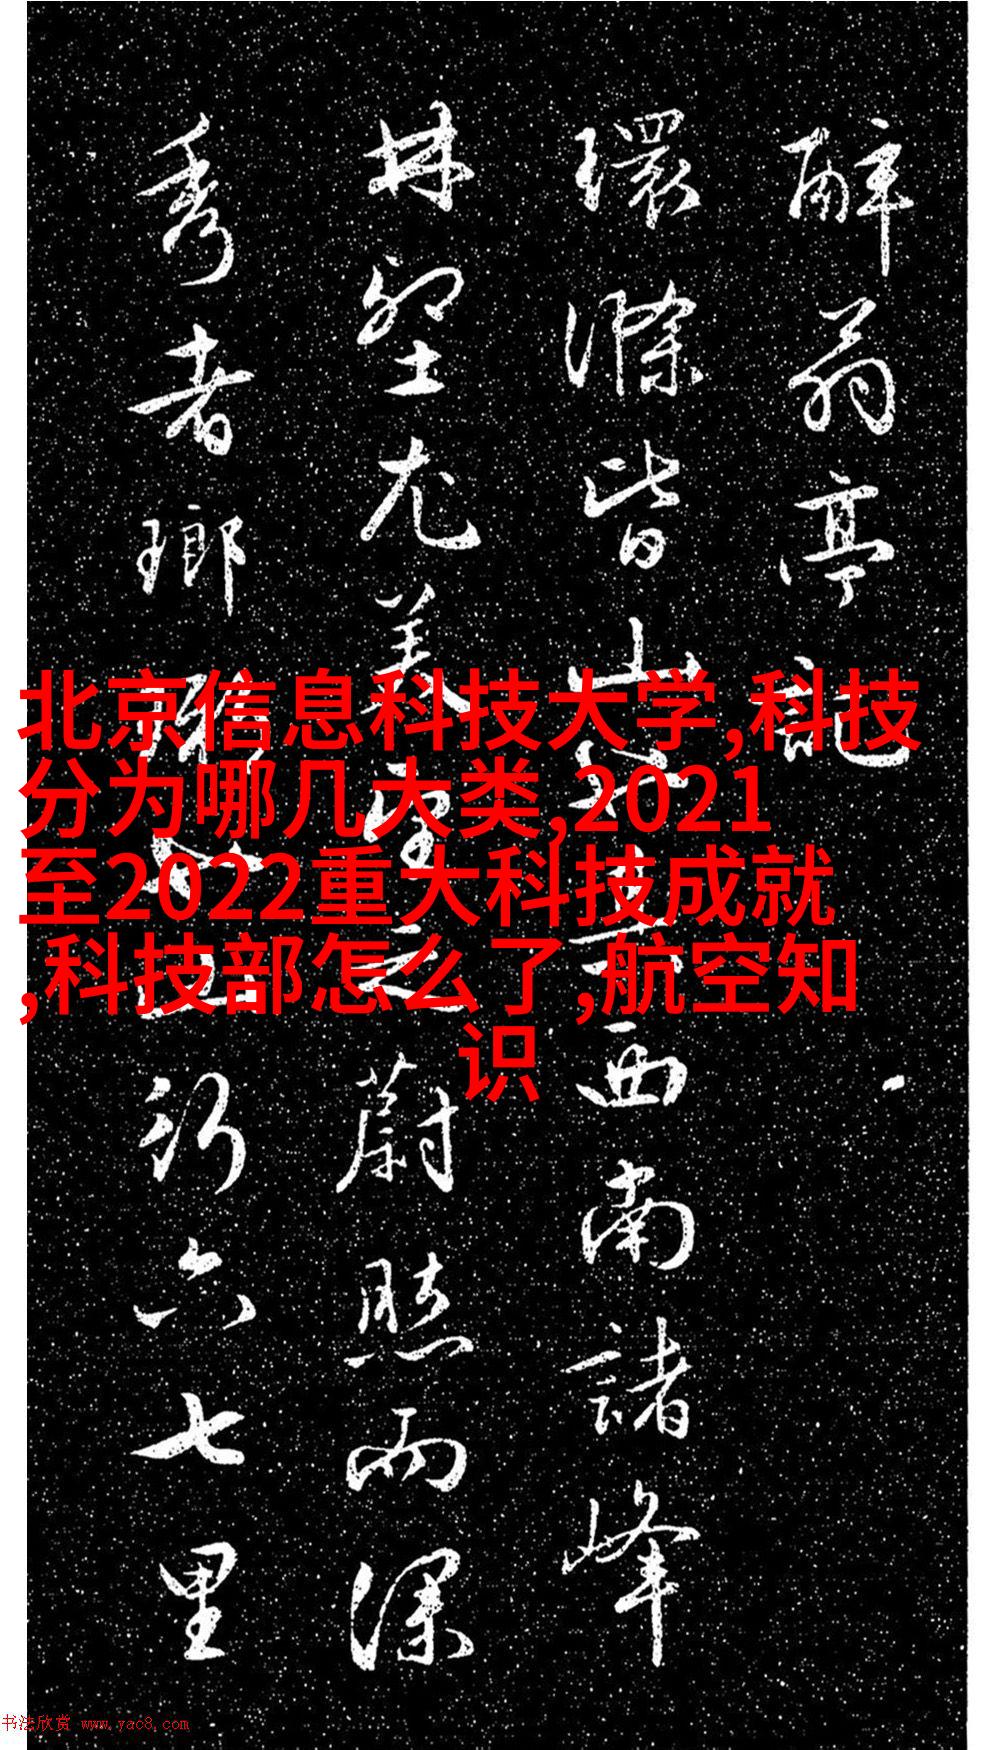 醉翁亭記
環滁皆山也其西南諸峰
林壑尤美望之蔚然而深
秀者瑯琊也山行六七里
北京信息科技大学,科技
分为哪几大类,2021
至2022重大科技成就
,科技部怎么了,航空知
识
书法欣赏 www.yac8.com